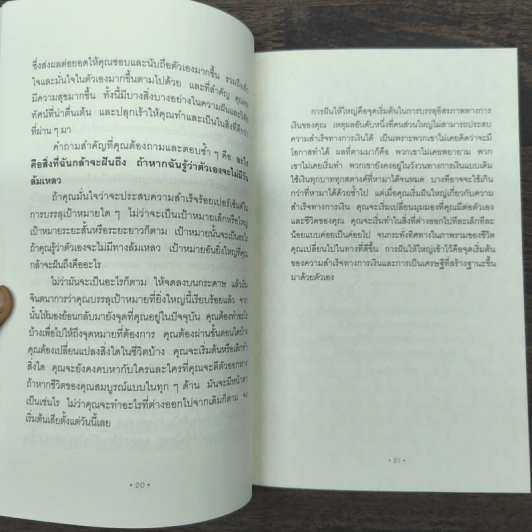 ซึ่งส่งผลต่อยอดให้คุณชอบและนับถือตัวเองมากขึ้น รวมถึงเข้า
ใจและมั่นใจในตัวเองมากขึ้นตามไปด้วย และที่สำคัญ คุณจะ
มีความสุขมากขึ้น ทั้งนี้มีบางสิ่งบางอย่างในความฝันและวิสัย
ทัศน์ที่น่าตื่นเต้น และปลุกเร้าให้คุณทำและเป็นในสิ่งที่ดีกว่า
ที่ผ่าน ๆ มา
คำถามสำคัญที่คุณต้องถามและตอบซ้ำ ๆ คือ อะไร
คือสิ่งที่ฉันกล้าจะฝันถึง ถ้าหากฉันรู้ว่าตัวเองจะไม่มีวัน
ล้มเหลว
ถ้าคุณมั่นใจว่าจะประสบความสำเร็จร้อยเปอร์เซ็นต์ใน
การบรรลุเป้าหมายใด ๆ ไม่ว่าจะเป็นเป้าหมายเล็กหรือใหญ่
เป้าหมายระยะสั้นหรือระยะยาวก็ตาม เป้าหมายนั้นจะเป็นอะไร
ถ้าคุณรู้ว่าตัวเองไม่มีทางล้มเหลว เป้าหมายอันยิ่งใหญ่ที่คุณ
กล้าจะฝันถึงคืออะไร
ไม่ว่ามันจะเป็นอะไรก็ตาม ให้จดลงบนกระดาษ แล้วเริ่ม
จินตนาการว่าคุณบรรลุเป้าหมายที่ยิ่งใหญ่นี้เรียบร้อยแล้ว จาก
นั้นให้มองย้อนกลับมายังจุดที่คุณอยู่ในปัจจุบัน คุณต้องทำอะไร
บ้างเพื่อไปให้ถึงจุดหมายที่ต้องการ คุณต้องผ่านขั้นตอนใดบ้าง
คุณต้องเปลี่ยนแปลงสิ่งใดในชีวิตบ้าง คุณจะเริ่มต้นหรือเลิกทำ
สิ่งใด คุณจะยังคงคบหากับใครและใครที่คุณจะตีตัวออกห่าง
ถ้าหากชีวิตของคุณสมบูรณ์แบบในทุก ๆ ด้าน มันจะมีหน้าตา
เป็นเช่นไร ไม่ว่าคุณจะทำอะไรที่ต่างออกไปจากเดิมก็ตาม จง
เริ่มต้นเสียตั้งแต่วันนี้เลย
• 20 •
การฝันให้ใหญ่คือจุดเริ่มต้นในการบรรลุอิสรภาพทางการ
เงินของคุณ เหตุผลอันดับหนึ่งที่คนส่วนใหญ่ไม่สามารถประสบ
ความสำเร็จทางการเงินได้ เป็นเพราะพวกเขาไม่เคยคิดว่าจะมี
โอกาสทำได้ ผลที่ตามมาก็คือ พวกเขาไม่เคยพยายาม พวก
เขาไม่เคยเริ่มทำ พวกเขายังคงอยู่ในวังวนทางการเงินแบบเดิม
ใช้เงินทุกบาททุกสตางค์ที่หามาได้จนหมด บางทีอาจจะใช้เกิน
กว่าที่หามาได้ด้วยซ้ำไป แต่เมื่อคุณเริ่มฝันใหญ่เกี่ยวกับความ
สำเร็จทางการเงิน คุณจะเริ่มเปลี่ยนมุมมองที่คุณมีต่อตัวเอง
และชีวิตของคุณ คุณจะเริ่มทำในสิ่งที่ต่างออกไปทีละเล็กทีละ
น้อยแบบค่อยเป็นค่อยไป จนกระทั่งทิศทางในภาพรวมของชีวิต
คุณเปลี่ยนไปในทางที่ดีขึ้น การฝันให้ใหญ่เข้าไว้คือจุดเริ่มต้น
ของความสำเร็จทางการเงินและการเป็นเศรษฐีที่สร้างฐานะขึ้น
มาด้วยตัวเอง
• 21 •